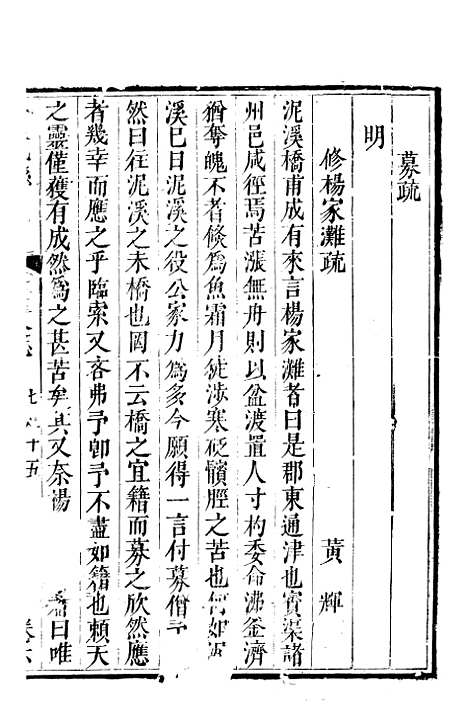 募疏
明
修楊家灘疏 黃輝
泥溪橋甫成有來言楊家灘者曰是郡東通津也實渠諸
州邑咸徑焉苦漲無舟則以盆渡置人寸杓委命沸釜濟
猶奪魄不者倐爲魚霜月徒涉寒砭髕脛之苦也何如泥
溪巳日泥溪之役公家力爲多今願得一言付募僧予
然曰往泥溪之未橋也罔不云橋之宜籍而募之欣然應
者幾幸而應之乎臨索又吝弗予卽予不盡如籍也頼天
之靈僅獲有成然爲之甚苦矣其又奈湯 曰唯
卷六